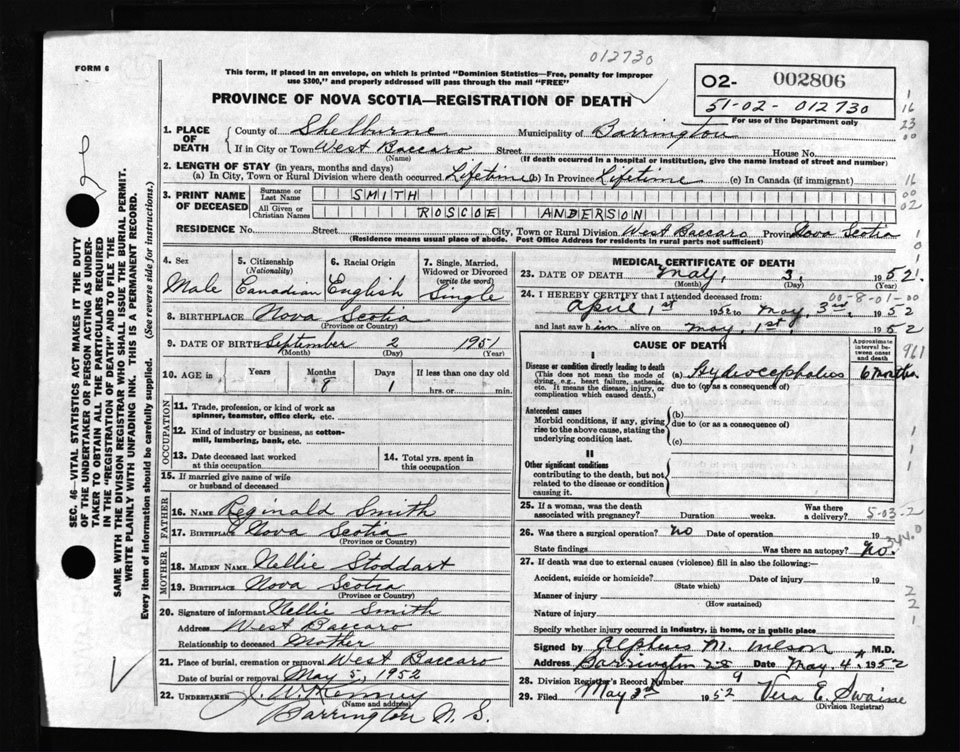 012730
FORM 6
This form, if placed in an envelope, on which is printed "Dominion Statistics—Free, penalty for improper
use $300," and properly addressed will pass through the mail "FREE"
PROVINCE OF NOVA SCOTIA—REGISTRATION OF DEATH
02- 002806
51-02-012730
For use of the Department only
1. PLACE OF DEATH { County of Shelburne Municipality of Barrington
If in City or Town West Baccaro Street House No.
(Name) (If death occurred in a hospital or institution, give the name instead of street and number)
2. LENGTH OF STAY (in years, months and days)
(a) In City, Town or Rural Division where death occurred Lifetime (b) In Province Lifetime (c) In Canada (if immigrant)
3. PRINT NAME OF DECEASED { Surname or Last Name SMITH
All Given or Christian Names ROSCOE ANDERSON
RESIDENCE No. Street City, Town or Rural Division West Baccaro Province Nova Scotia
(Residence means usual place of abode. Post Office Address for residents in rural parts not sufficient)
4. Sex Male
5. Citizenship (Nationality) Canadian
6. Racial Origin English
7. Single, Married, Widowed or Divorced (write the word) Single
8. BIRTHPLACE Nova Scotia
(Province or Country)
9. DATE OF BIRTH September 2 1951
(Month) (Day) (Year)
10. AGE in { Years Months 8 Days 1 If less than one day old
hrs. or min.
OCCUPATION
11. Trade, profession, or kind of work as
spinner, teamster, office clerk, etc.
12. Kind of industry or business, as cotton-
mill, lumbering, bank, etc.
13. Date deceased last worked
at this occupation
14. Total yrs. spent in
this occupation
15. If married give name of wife
or husband of deceased
FATHER
16. NAME Reginald Smith
17. BIRTHPLACE Nova Scotia
(Province or Country)
MOTHER
18. MAIDEN NAME Nellie Stoddart
19. BIRTHPLACE Nova Scotia
(Province or Country)
20. Signature of informant Nellie Smith
Address West Baccaro
Relationship to deceased Mother
21. Place of burial, cremation or removal West Baccaro
Date of burial or removal May 5, 1952
22. UNDERTAKER J. W. Kenney
(Name and address)
Barrington N. S.
MEDICAL CERTIFICATE OF DEATH
23. DATE OF DEATH May, 3, 1952
(Month) (Day) (Year)
00-8-01-00
24. I HEREBY CERTIFY that I attended deceased from:
April 1st 1952 to May, 3rd, 1952
and last saw him alive on May, 1st, 1952
CAUSE OF DEATH
Approximate interval between onset and death
961
I
Disease or condition directly leading to death
(This does not mean the mode of dying, e.g., heart failure, asthenia, etc. It means the disease, injury, or complication which caused death.)
(a) Hydrocephalics 6 months
due to (or as a consequence of)
Antecedent causes
Morbid conditions, if any, giving rise to the above cause, stating the underlying condition last.
(b)
due to (or as a consequence of)
(c)
II
Other significant conditions
contributing to the death, but not related to the disease or condition causing it.
25. If a woman, was the death associated with pregnancy? Duration weeks. Was there a delivery? 5-03-2
26. Was there a surgical operation? no Date of operation 19
344.0
State findings Was there an autopsy? no.
27. If death was due to external causes (violence) fill in also the following:—
Accident, suicide or homicide? Date of injury 19
(State which)
Manner of injury
(How sustained)
Nature of injury
Specify whether injury occurred in industry, in home, or in public place
Signed by M.D.
Address Barrington Date May. 4, 1952
28. Division Registrar's Record Number 9
29. Filed May 1952 Vera E. Swaine
(Division Registrar)
SEC. 46—VITAL STATISTICS ACT MAKES IT THE DUTY
OF THE UNDERTAKER OR PERSON ACTING AS UNDER-
TAKER TO OBTAIN ALL THE PARTICULARS REQUIRED
IN THE "REGISTRATION OF DEATH" AND TO FILE THE
SAME WITH THE DIVISION REGISTRAR WHO SHALL ISSUE THE BURIAL PERMIT.
WRITE PLAINLY WITH UNFADING INK. THIS IS A PERMANENT RECORD.
Every item of information should be carefully supplied. (See reverse side for instructions.)